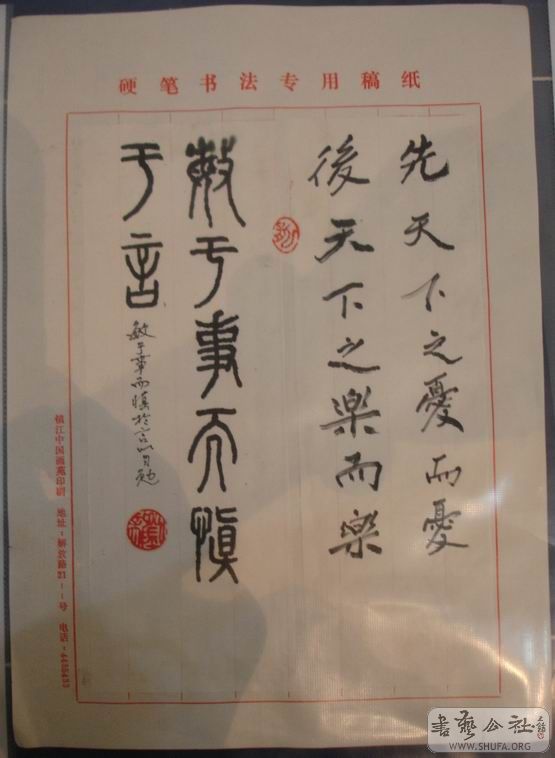 硬笔书法专用稿纸
先天下之憂而憂
後天下之樂而樂
敏于事而慎
于言
敏于事而慎於言以自勉
镇江中国画苑印刷 地址:解放路21--号 电话:4425433
書藝公社
WWW.SHUFA.ORG